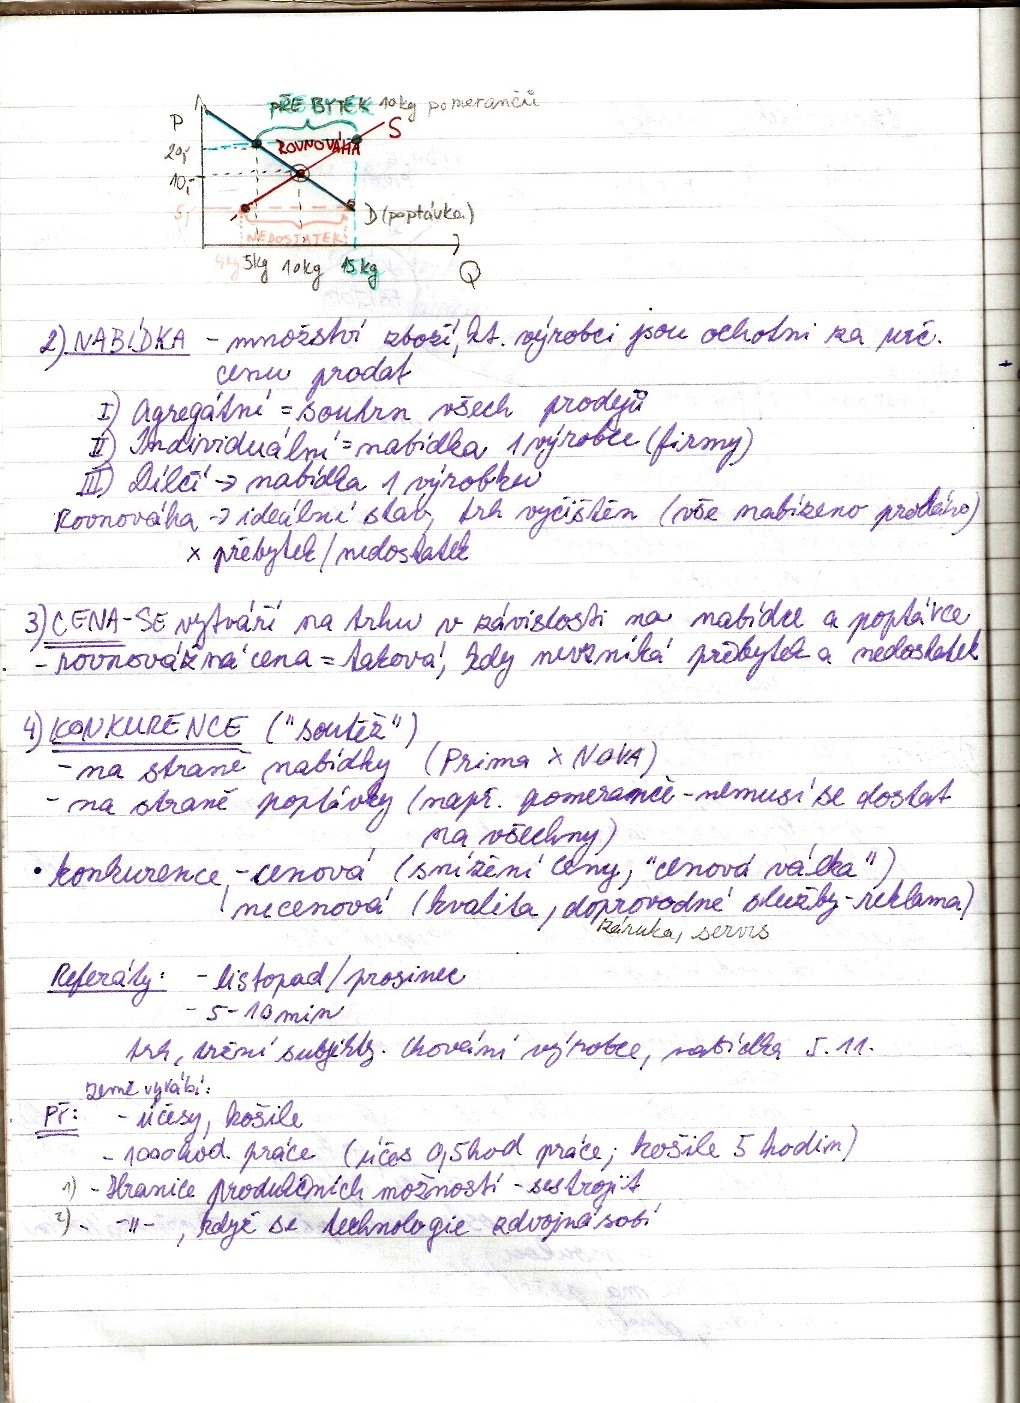 PŘEBYTEK 10kg pomerančů
P
S
20,-
ROVNOVÁHA
10,-
5,-
D (poptávka)
NEDOSTATEK
4kg 5kg 10kg 15kg
Q
2) NABÍDKA - množství zboží, kt. výrobci jsou ochotni za urč.
cenu prodat
I) Agregátní = souhrn všech prodejů
II) Individuální = nabídka 1 výrobce (firmy)
III) Dílčí → nabídka 1 výrobku
Rovnováha → ideální stav, trh vyčištěn (vše nabízeno prodáno)
x přebytek/nedostatek
3) CENA - SE vytváří na trhu v závislosti na nabídce a poptávce
- rovnovážná cena = taková, kdy nevzniká přebytek a nedostatek
4) KONKURENCE ("soutěž")
- na straně nabídky (Prima x NOVA)
- na straně poptávky (např. pomeranče - nemusí se dostat
na všechny)
• konkurence - cenová (snížení ceny, "cenová válka")
necenová (kvalita, doprovodné služby - reklama)
záruka, servis
Referáty: - listopad/prosinec
- 5-10 min
trh, tržní subjekty. Chování výrobce, nabídka 5.11.
Země vyrábí:
Př: - účesy, košile
- 1000 hod. práce (účes 0,5 hod práce; košile 5 hodin)
1) - Hranice produkčních možností - sestrojit
2) - -"-, když se technologie zdvojnásobí